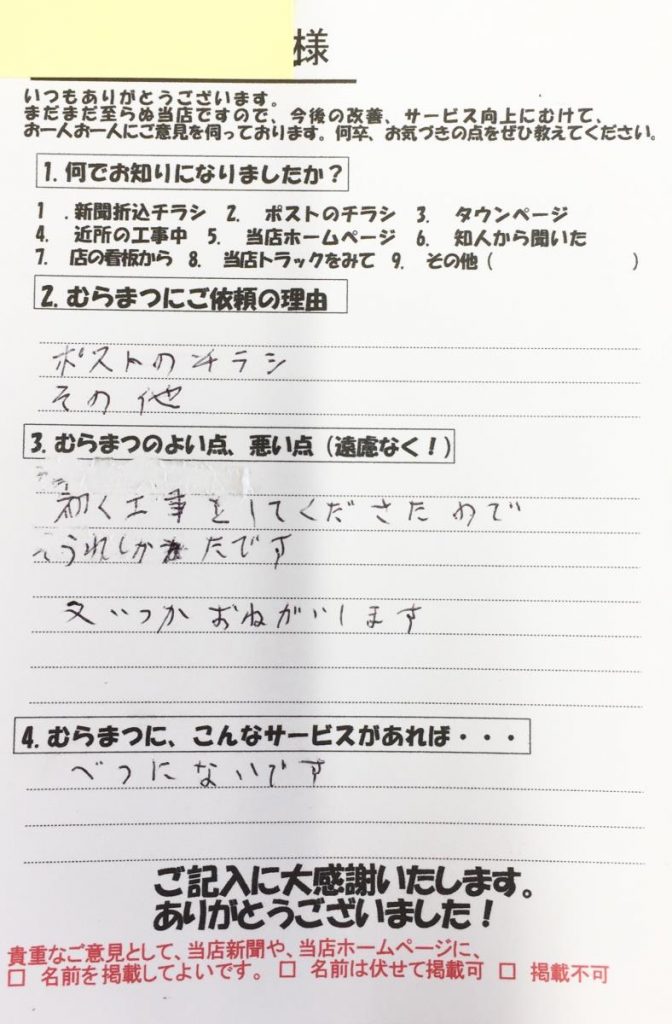 様
いつもありがとうございます。
まだまだ至らぬ当店ですので、今後の改善、サービス向上にむけて、
お一人お一人にご意見を伺っております。何卒、お気づきの点をぜひ教えてください。
1. 何でお知りになりましたか？
1 .新聞折込チラシ 2. ポストのチラシ 3. タウンページ
4. 近所の工事中 5. 当店ホームページ 6. 知人から聞いた
7. 店の看板から 8. 当店トラックをみて 9. その他（ ）
2. むらまつにご依頼の理由
ポストのチラシ
その他
3. むらまつのよい点、悪い点（遠慮なく！）
初く工事をしてくださたので
うれしかたです
又いつかおねがいします
4. むらまつに、こんなサービスがあれば・・・
べつにないです
ご記入に大感謝いたします。
ありがとうございました！
貴重なご意見として、当店新聞や、当店ホームページに、
□ 名前を掲載してよいです。 □ 名前は伏せて掲載可 □ 掲載不可